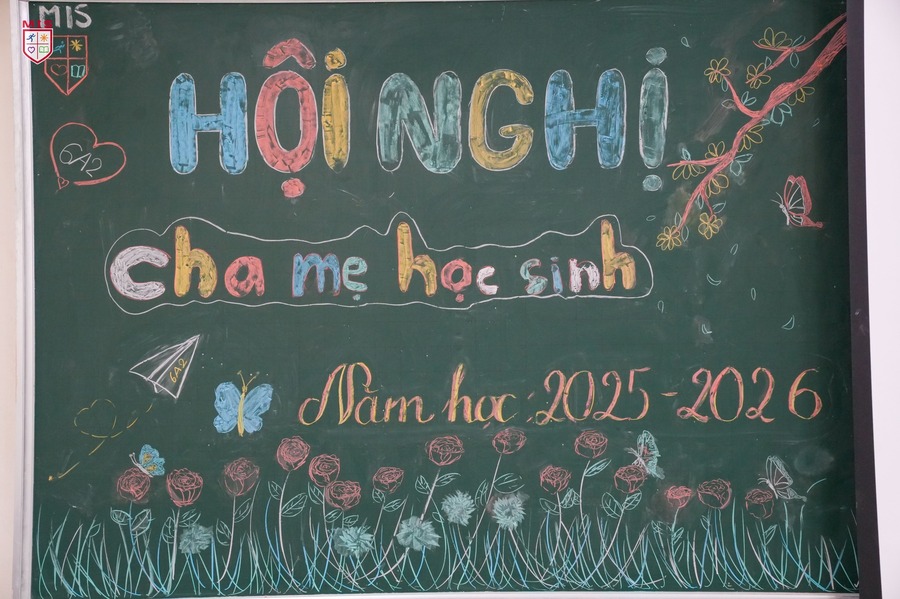 MIS
MIS
HỘI NGHỊ
6A2
cha mẹ học sinh
6A2
Năm học : 2025 - 2026